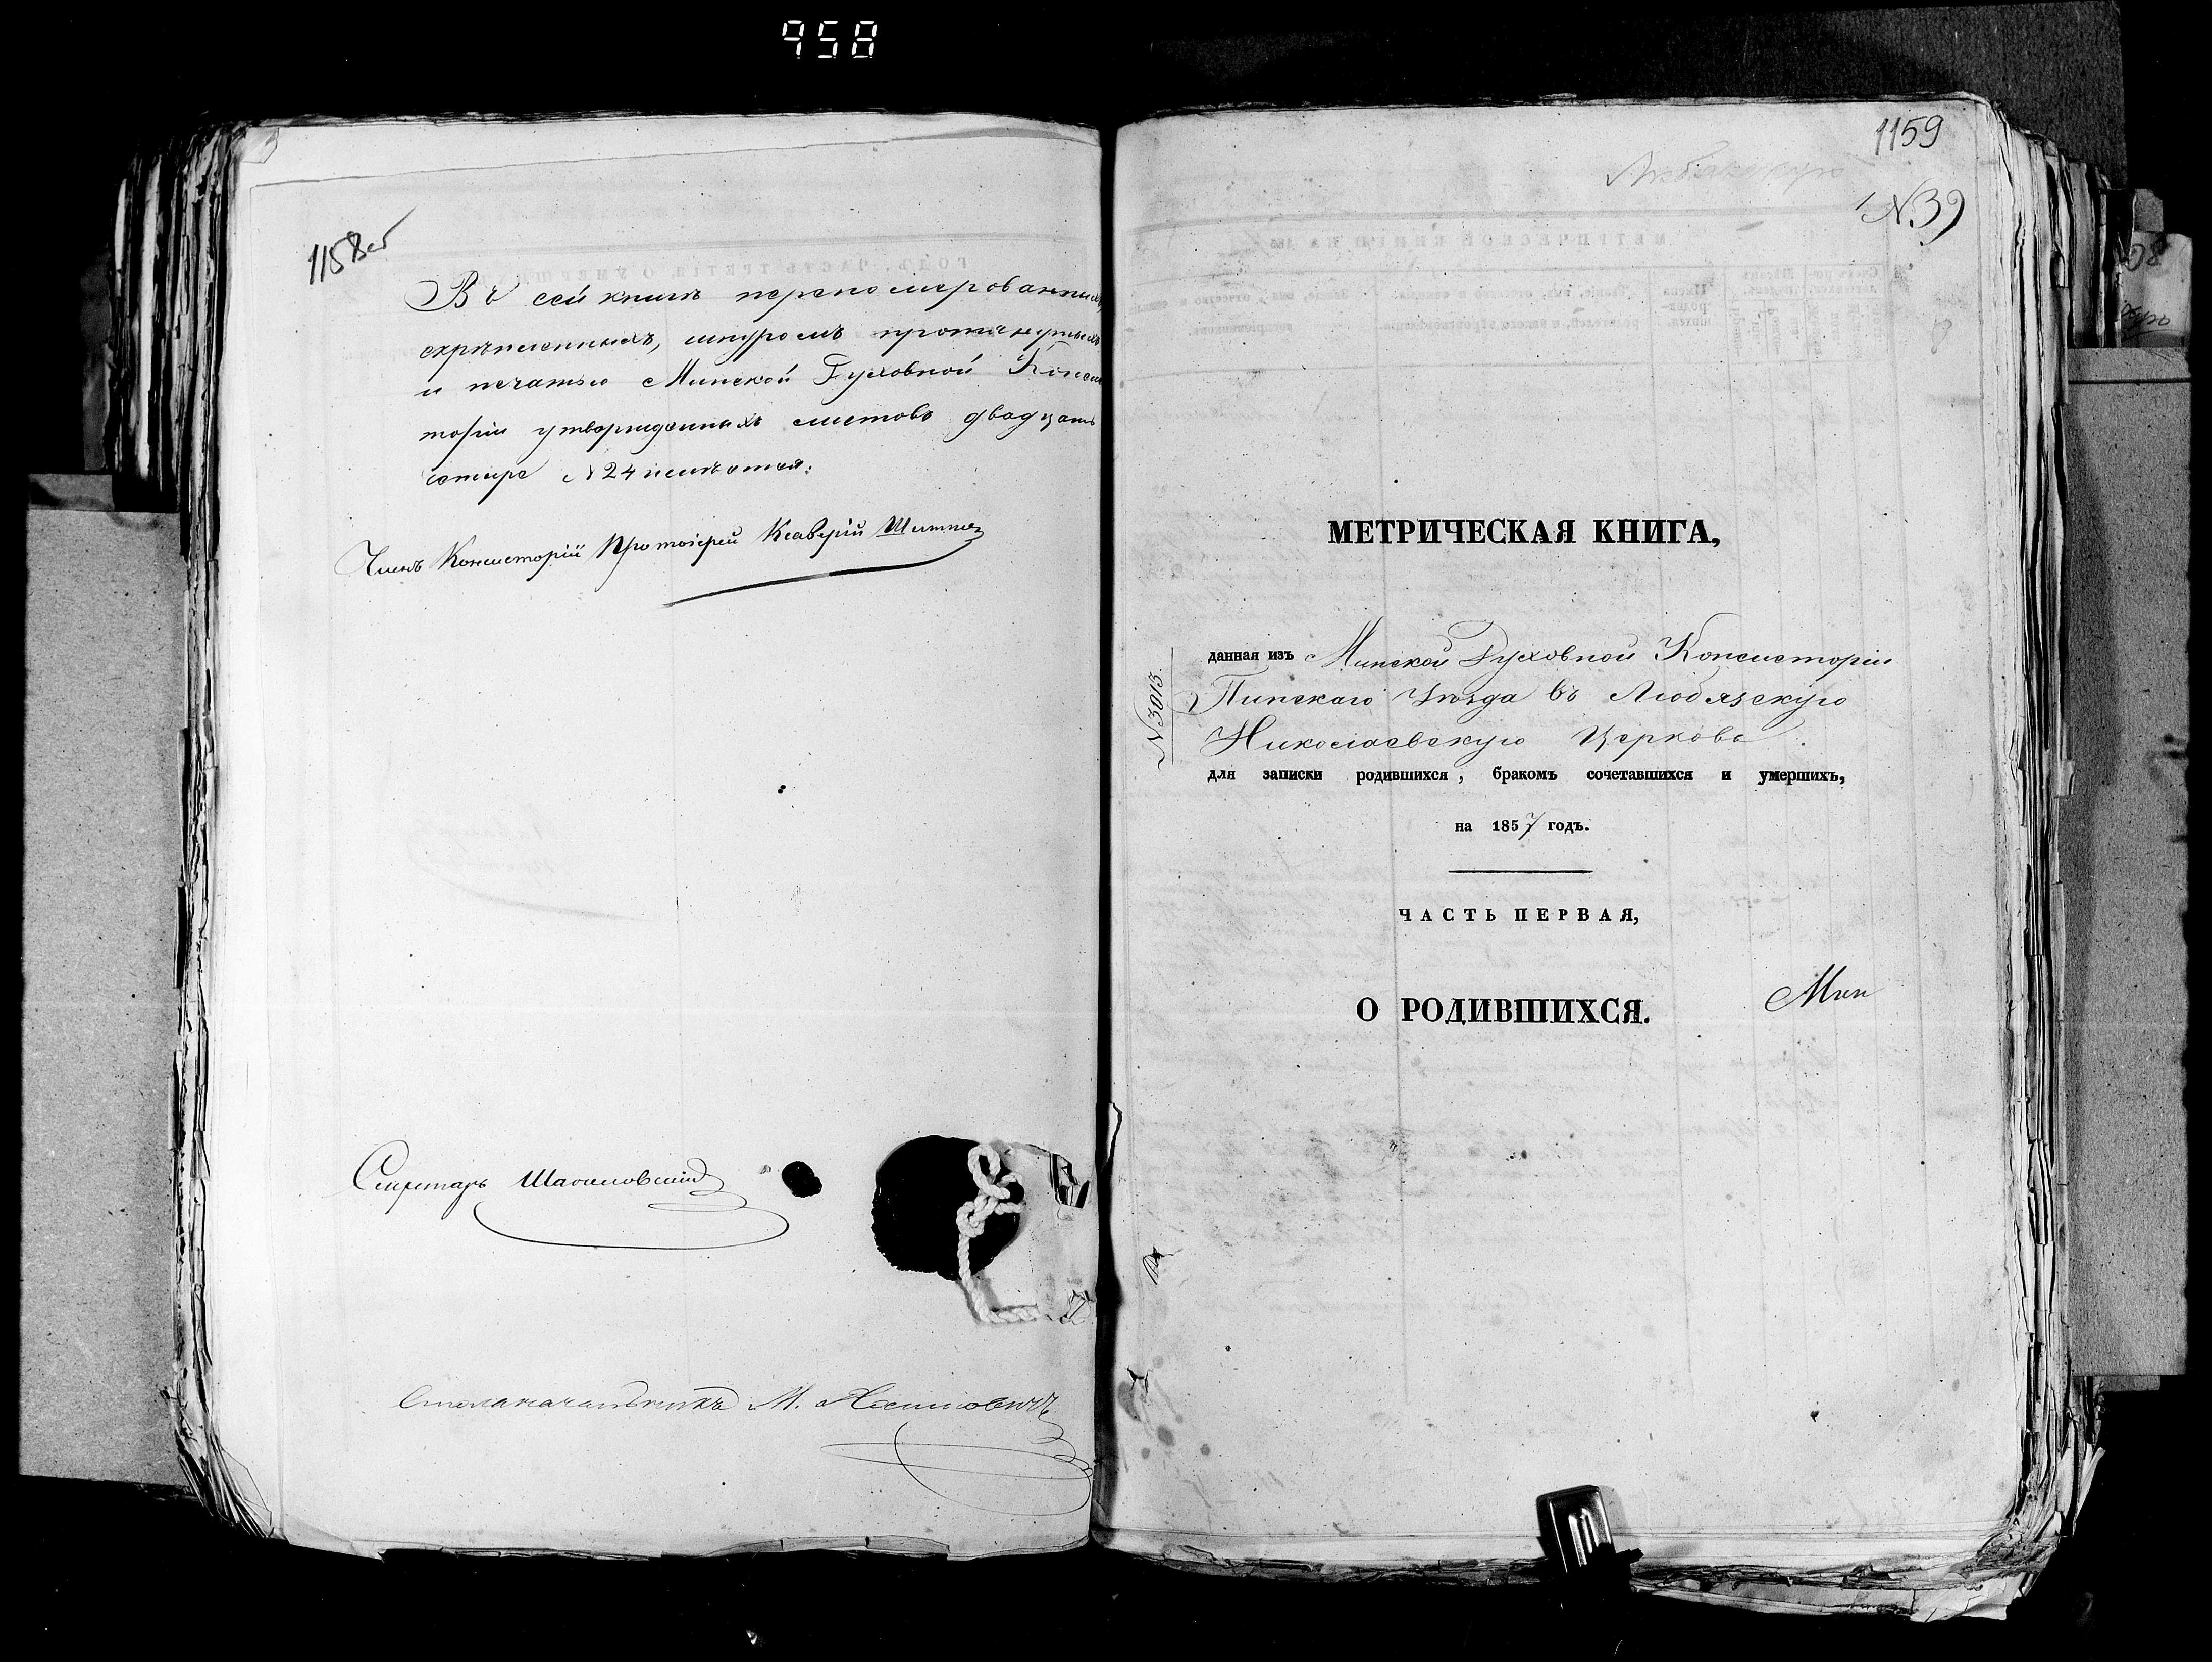 958
1158об
Въ сей книгѣ перепомерованныхъ,
скрѣпленныхъ, шнуромъ протянутыхъ
и печатью Минской Духовной Конси
торіи утвержденныхъ листовъ двадцать
четыре №24 имѣется.
Членъ Консисторіи Протоіерей Ксаверій
Секретарь
Столоначальникъ М.
1159
Любязскую
№39
МЕТРИЧЕСКАЯ КНИГА,
данная изъ Минской Духовной Консисторіи
Пинскаго Уѣзда въ Любязскую
Николаевскую Церковь
№3013
для записки родившихся, бракомъ сочетавшихся и умершихъ,
на 1857 годъ.
ЧАСТЬ ПЕРВАЯ,
О РОДИВШИХСЯ.
Мин